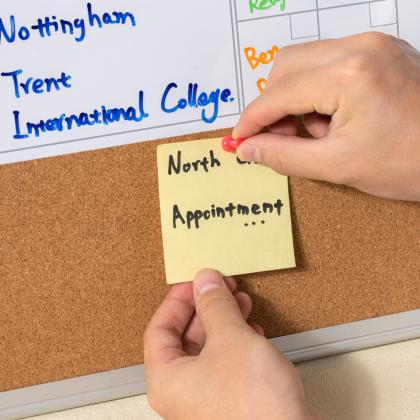 Nottingham
Trent
International College.
North
Appointment
...